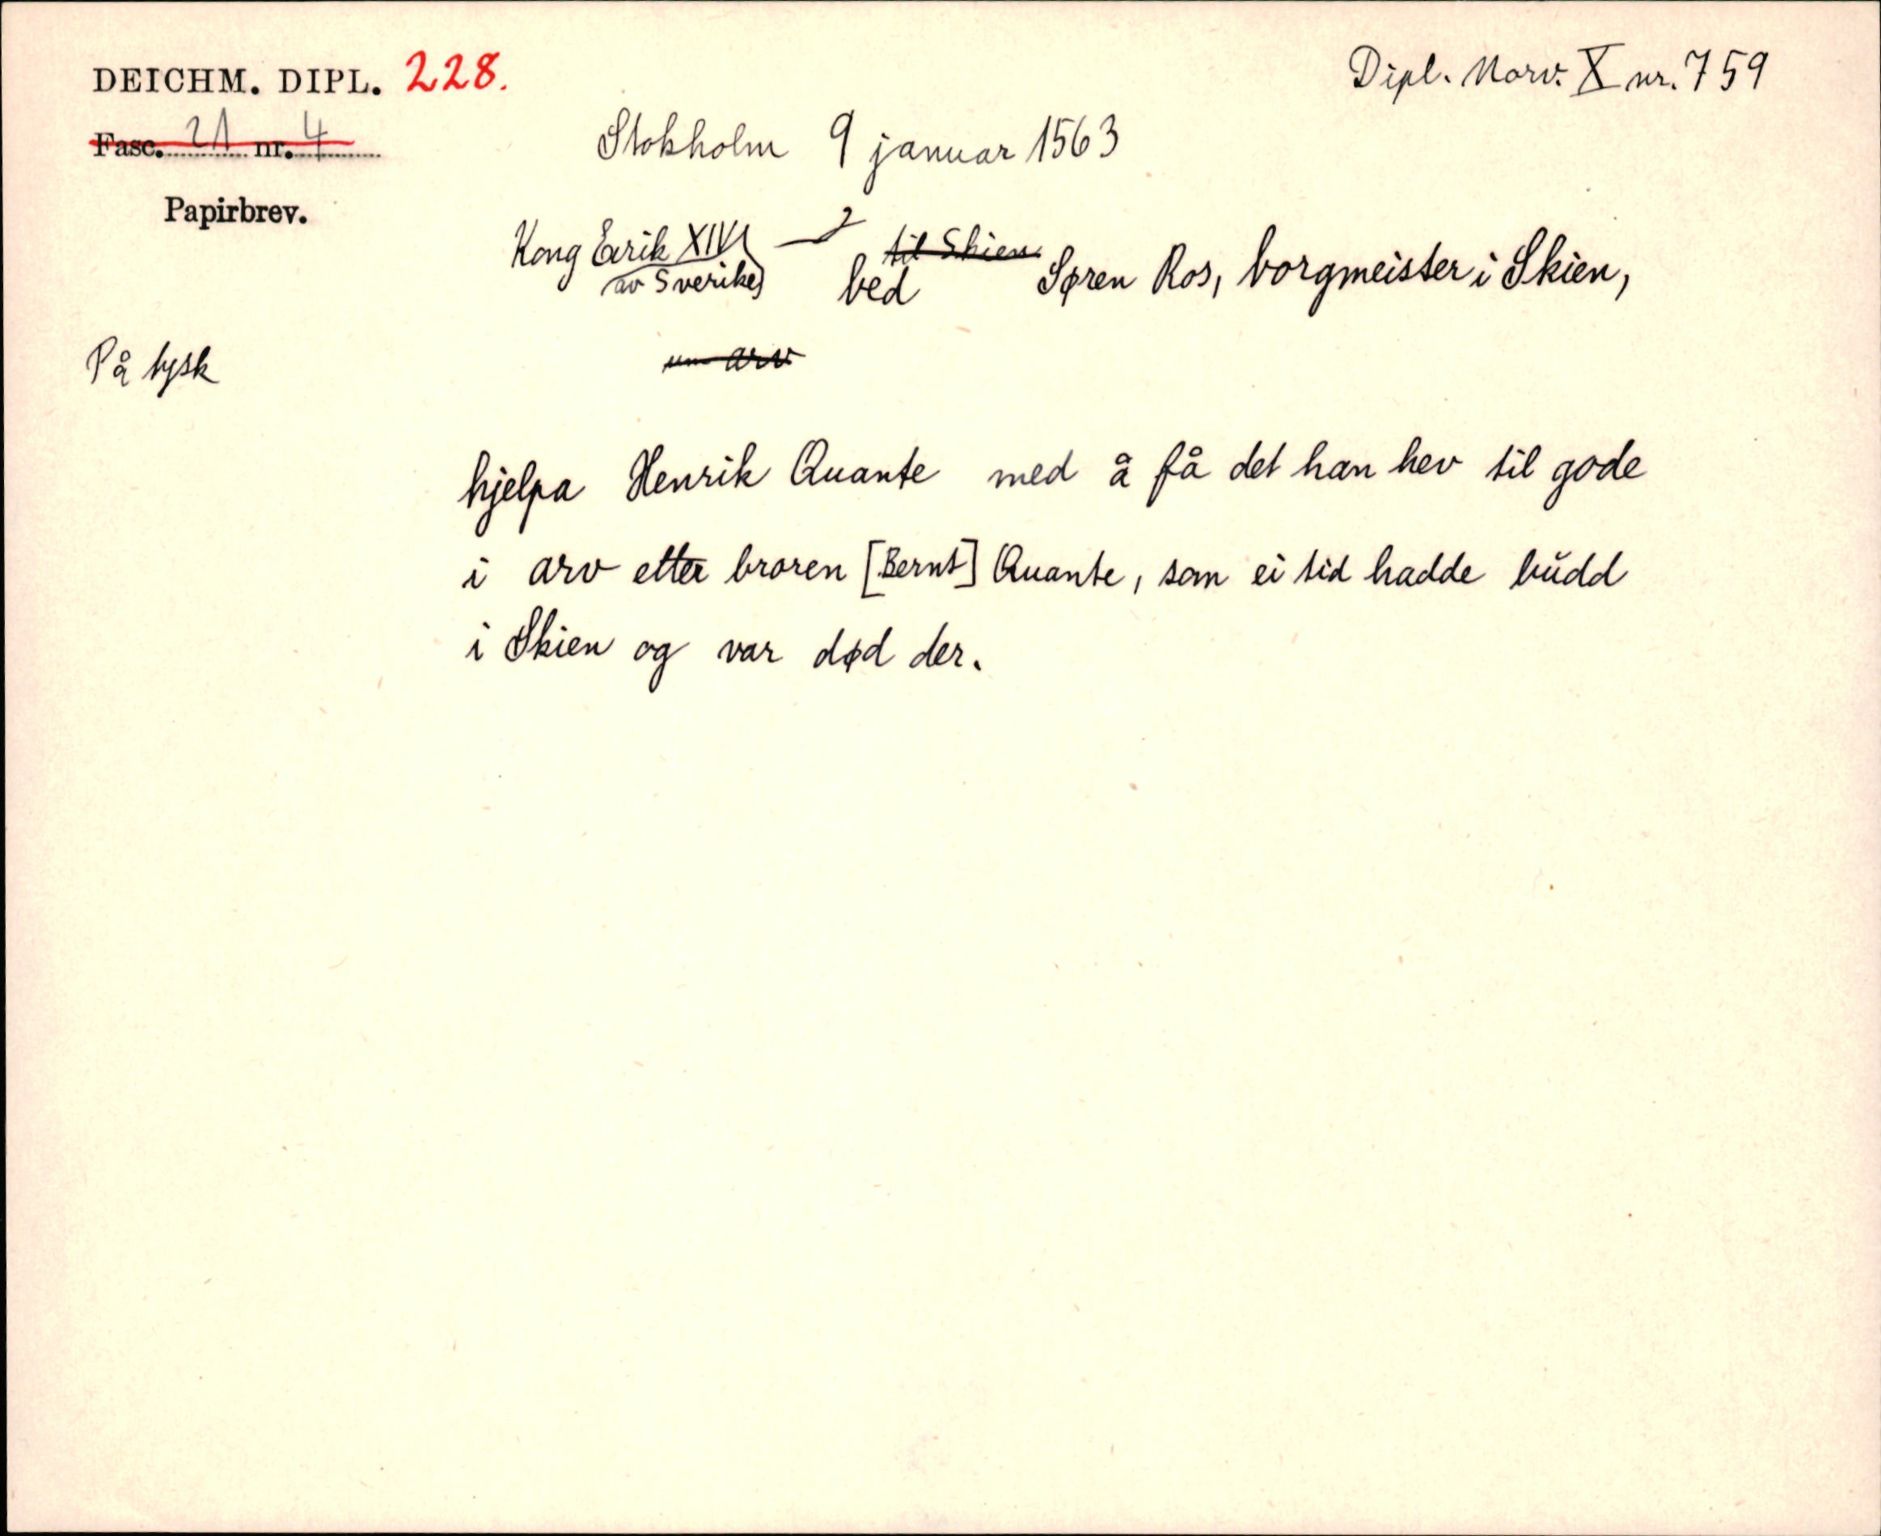 DEICHM. DIPL. 228.
Dipl. Norv. X nr. 759
Fasc. 21 nr. 4
Stokholm 9 januar 1563
Papirbrev.
Kong Eirik XIV
av Sverike
til Skien
bed Søren Ros, borgmeister i Skien,
På tysk
um arv
hjelpa Henrik Quante med å få det han hev til gode
i arv etter broren [Bernt] Quante, som ei tid hadde budd
i Skien og var død der.